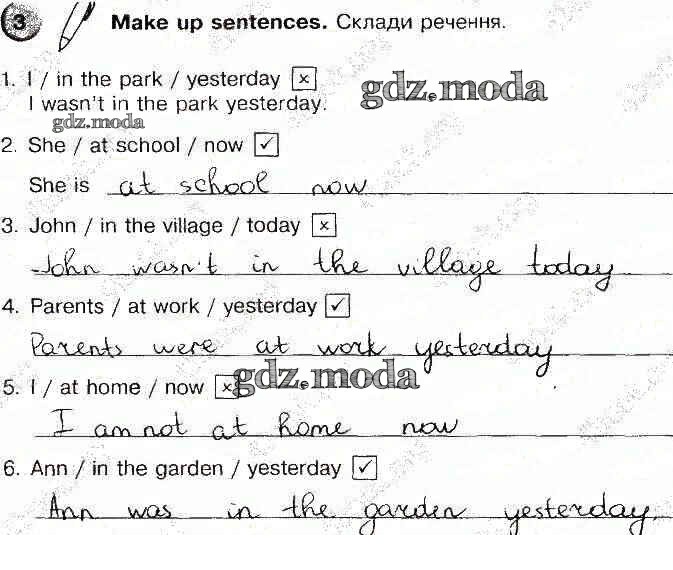 3 Make up sentences. Склади речення.
1. I / in the park / yesterday ☒
I wasn't in the park yesterday.
gdz.moda
gdz.moda
2. She / at school / now ☑
She is at school now
3. John / in the village / today ☒
John wasn't in the village today
4. Parents / at work / yesterday ☑
Parents were at work yesterday
5. I / at home / now ☒
gdz.moda
I am not at home now
6. Ann / in the garden / yesterday ☑
Ann was in the garden yesterday.